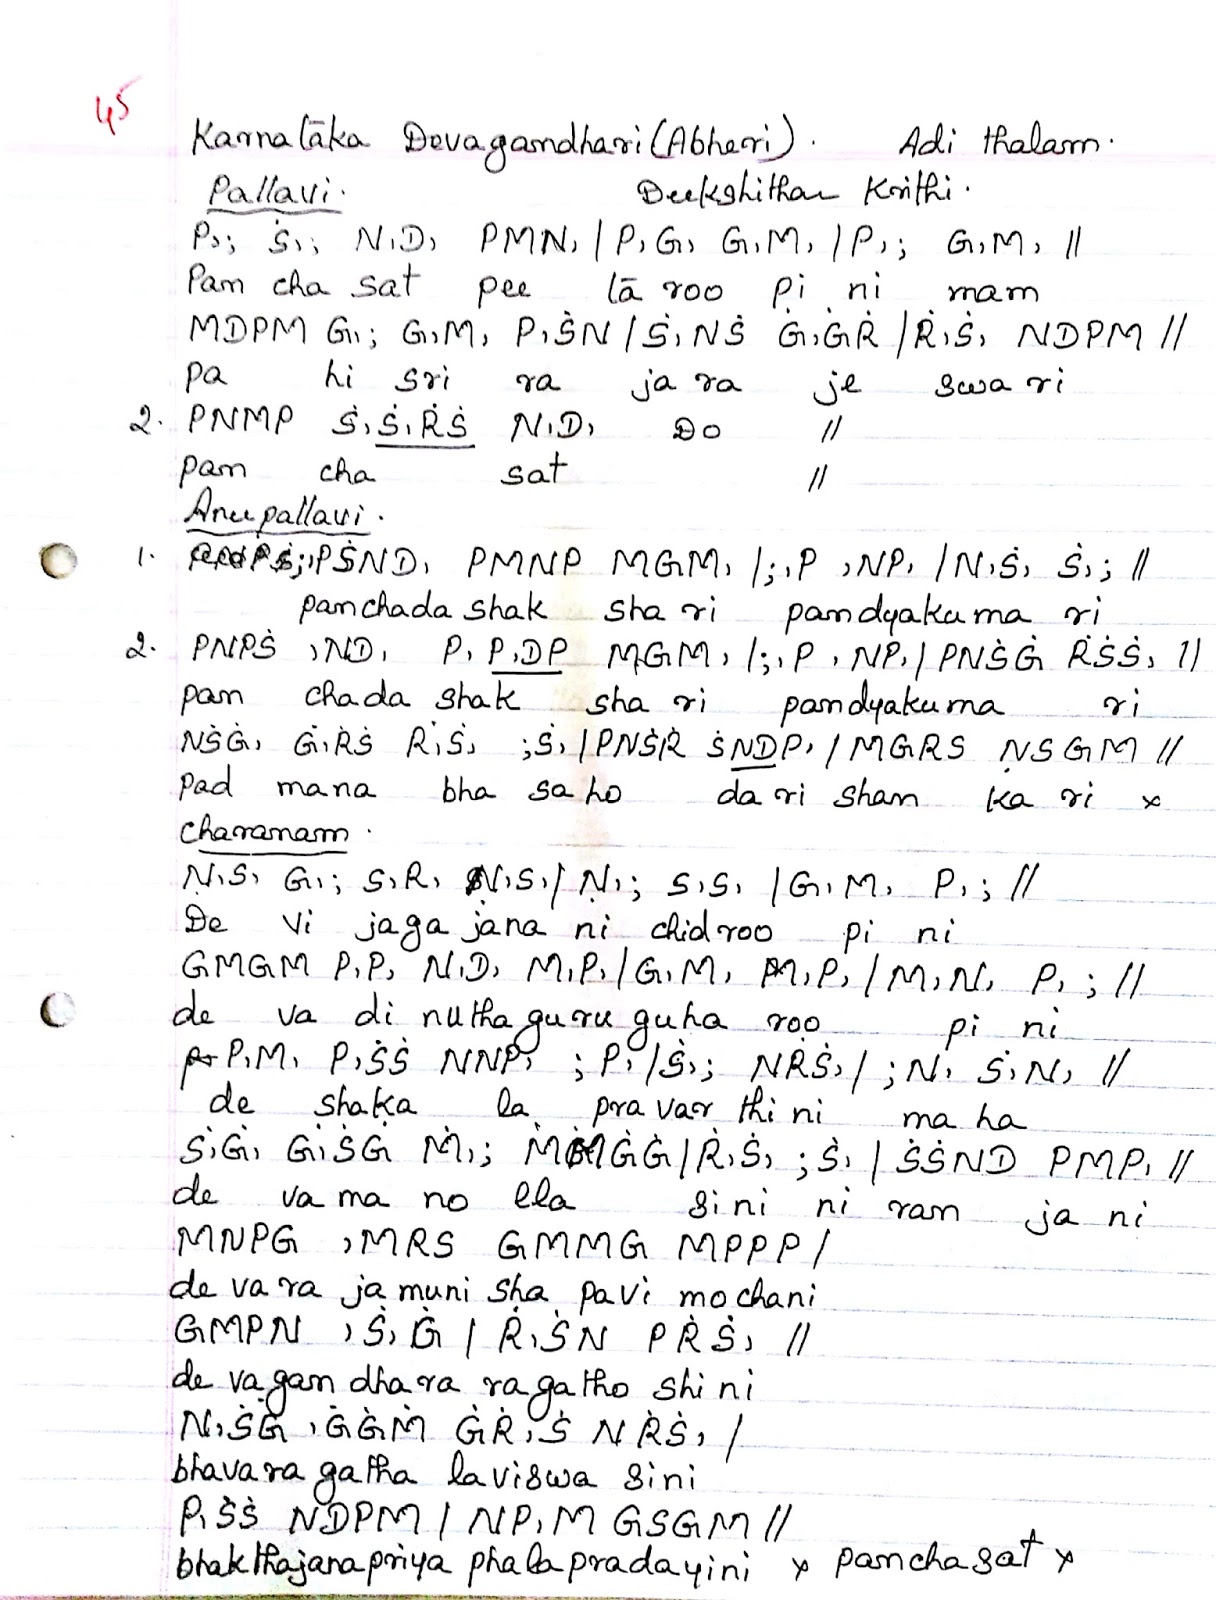 45
Karnatāka Devagandhari (Abheri). Adi thalam.
Pallavi. Deekshithar Krithi.
P,; Ṡ,; N,D, PMN, / P,G, G,M, / P,; G,M, //
Pam cha sat pee tā roo pi ni mam
MDPM G,; G,M, P,ṠN / Ṡ,NṠ Ġ,ĠṘ / Ṙ,Ṡ, NDPM //
pa hi sri ra ja ra je swa ri
2. PNMP Ṡ,Ṡ,ṘṠ N,D, Do //
pam cha sat //
Anupallavi.
1. ;,PṠND, PMNP MGM, /;,P ,NP, / N,Ṡ, Ṡ,; //
panchada shak sha ri pandyakuma ri
2. PNPṠ ,ND, P,P,DP MGM, /;,P ,NP, / PNṠĠ ṘṠṠ, //
pan chada shak sha ri pandyakuma ri
NṠĠ, Ġ,ṘṠ Ṙ,Ṡ, ;Ṡ, / PNṠṘ ṠNDP, / MGRS ṆSGM //
pad mana bha saho da ri shan ka ri x
charanam.
Ṇ,S, G,; S,R, Ṇ,S, / Ṇ,; S,S, / G,M, P,; //
De vi jaga jana ni chidroo pi ni
GMGM P,P, N,D, M,P, / G,M, M,P, / M,N, P,; //
de va di nutha guru guha roo pi ni
P,M, P,ṠṠ NNP, ;P, / Ṡ,; NṘṠ, / ;N, Ṡ,N, //
de shaka la pravar thi ni ma ha
Ṡ,Ġ, Ġ,ṠĠ Ṁ,; ṀṀĠĠ / Ṙ,Ṡ, ;Ṡ, / ṠṠND PMP, //
de va ma no lla si ni ni ram ja ni
MNPG ,MRS GMMG MPPP /
de va ra ja muni sha pa vi mochani
GMPN ,Ṡ,Ġ / Ṙ,ṠN PṘṠ, //
de vagandhara ragatho shi ni
N,ṠĠ ,ĠĠṀ ĠṘ,Ṡ NṘṠ, /
bhavara gatha laviswa sini
P,ṠṠ NDPM / NP,M GSGM //
bhakthajanapriya phalapradayini x panchasat x